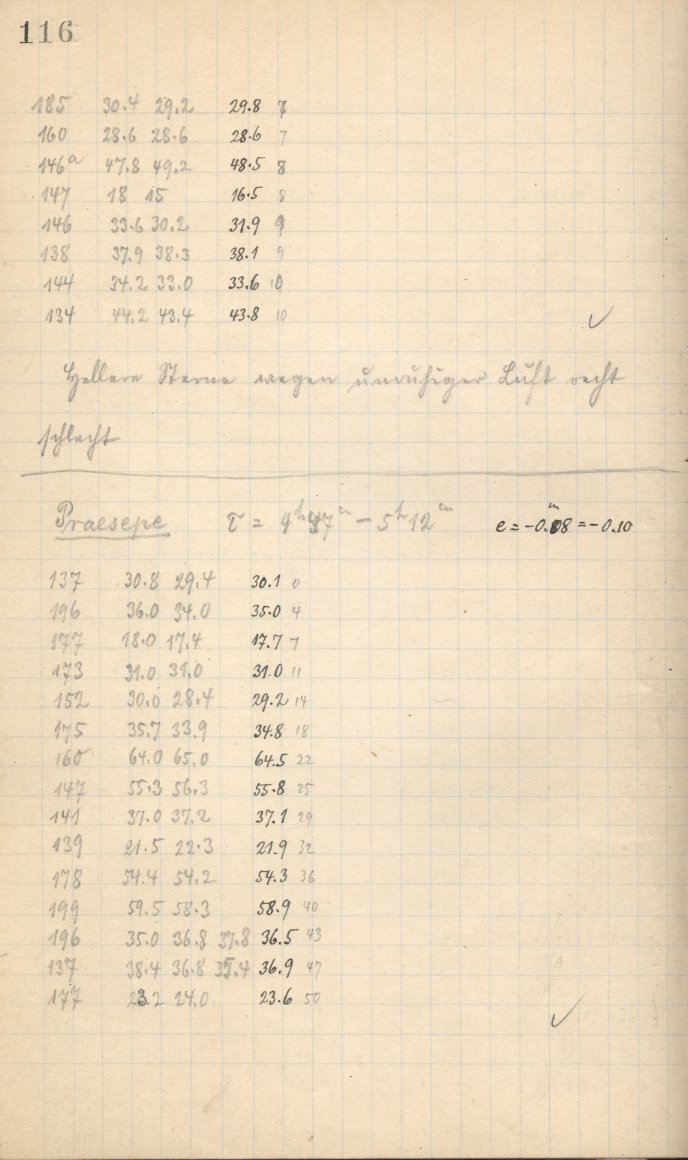 116
185 30.4 29.2 29.8 7
160 28.6 28.6 28.6 7
146a 47.8 49.2 48.5 8
147 18 15 16.5 8
146 33.6 30.2 31.9 9
138 37.9 38.3 38.1 9
144 34.2 33.0 33.6 10
134 44.2 43.4 43.8 10
✓
Hellere Sterne wegen unruhiger Luft recht
schlecht
Praesepe τ = 4h 37m – 5h 12m e = -0.m08 = -0.10
137 30.8 29.4 30.1 0
196 36.0 34.0 35.0 4
177 18.0 17.4 17.7 7
173 31.0 31.0 31.0 11
152 30.0 28.4 29.2 14
175 35.7 33.9 34.8 18
160 64.0 65.0 64.5 22
147 55.3 56.3 55.8 25
141 37.0 37.2 37.1 29
139 21.5 22.3 21.9 32
178 54.4 54.2 54.3 36
199 59.5 58.3 58.9 40
196 35.0 36.8 37.8 36.5 43
137 38.4 36.8 35.4 36.9 47
177 23.2 24.0 23.6 50
✓